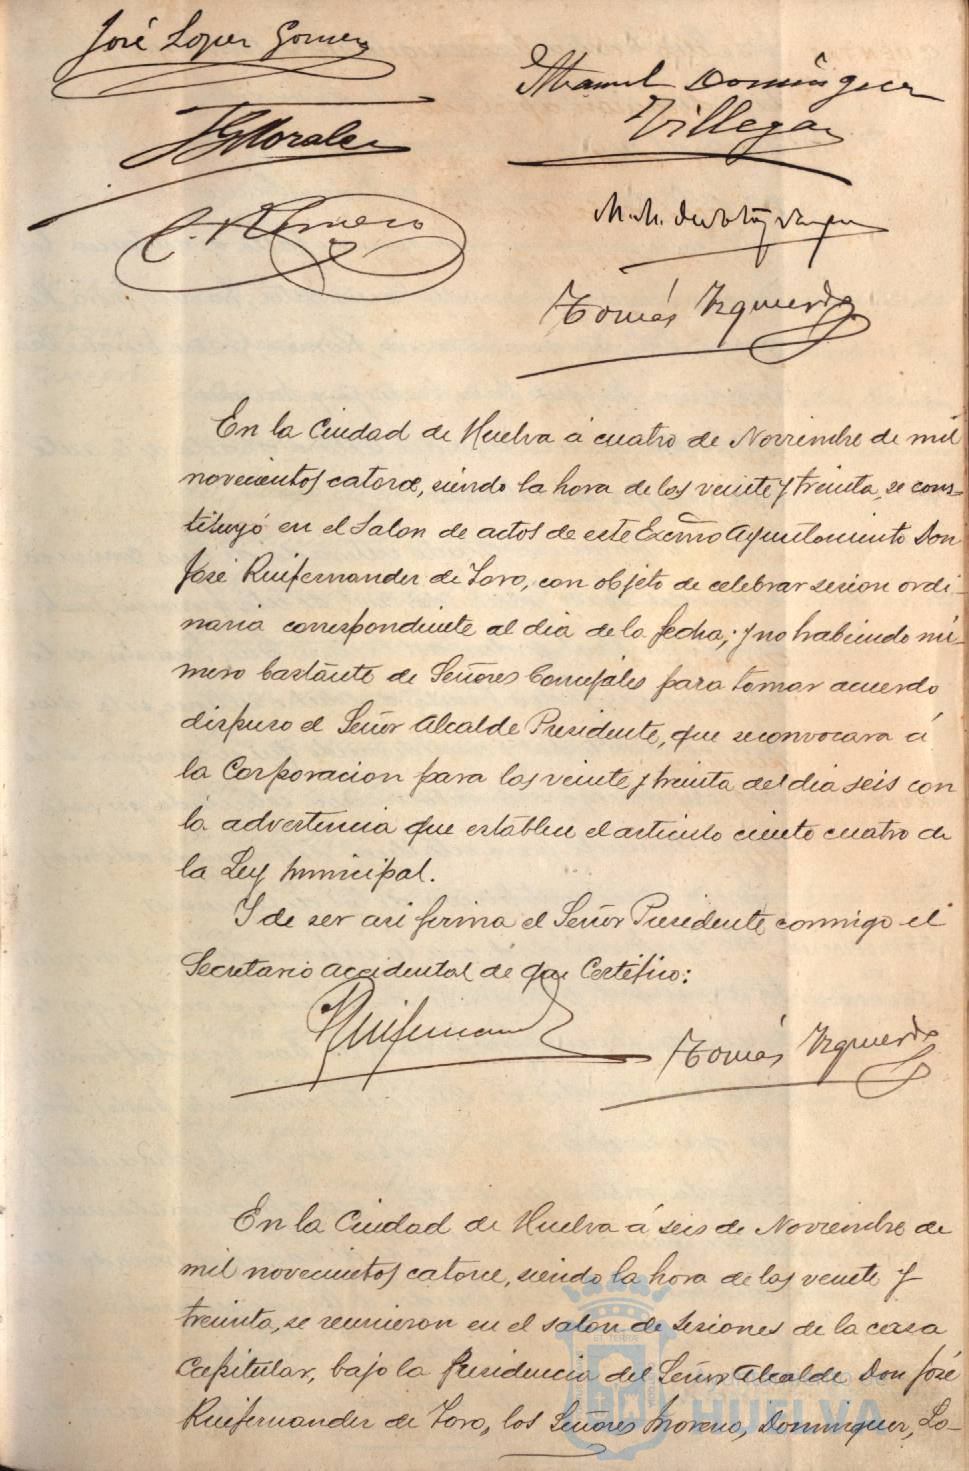 José Lopez Gomez
Manuel Dominguez
Villegas
J G Morales
C. Romero
M. M. de
Tomás Izquierdo
En la Ciudad de Huelva á cuatro de Noviembre de mil
novecientos catorce, siendo la hora de las veinte y treinta, se cons-
tituyó en el Salon de actos de este Excmo Ayuntamiento Don
José Ruifernandez de Toro, con objeto de celebrar sesion ordi-
naria correspondiente al dia de la fecha; y no habiendo nú-
mero bastante de Señores Concejales para tomar acuerdo
dispuso el Señor Alcalde Presidente, que se convocara á
la Corporacion para las veinte y treinta del dia seis con
la advertencia que establece el articulo ciento cuatro de
la Ley Municipal.
Y de ser asi firma el Señor Presidente conmigo el
Secretario accidental de que Certifico:
Ruifernandez
Tomás Izquierdo
En la Ciudad de Huelva á seis de Noviembre de
mil novecientos catorce, siendo la hora de las veinte y
treinta, se reunieron en el salon de sesiones de la casa
Capitular, bajo la Presidencia del Señor Alcalde Don José
Ruifernandez de Toro, los Señores Moreno, Dominguez, Lo-
HUELVA